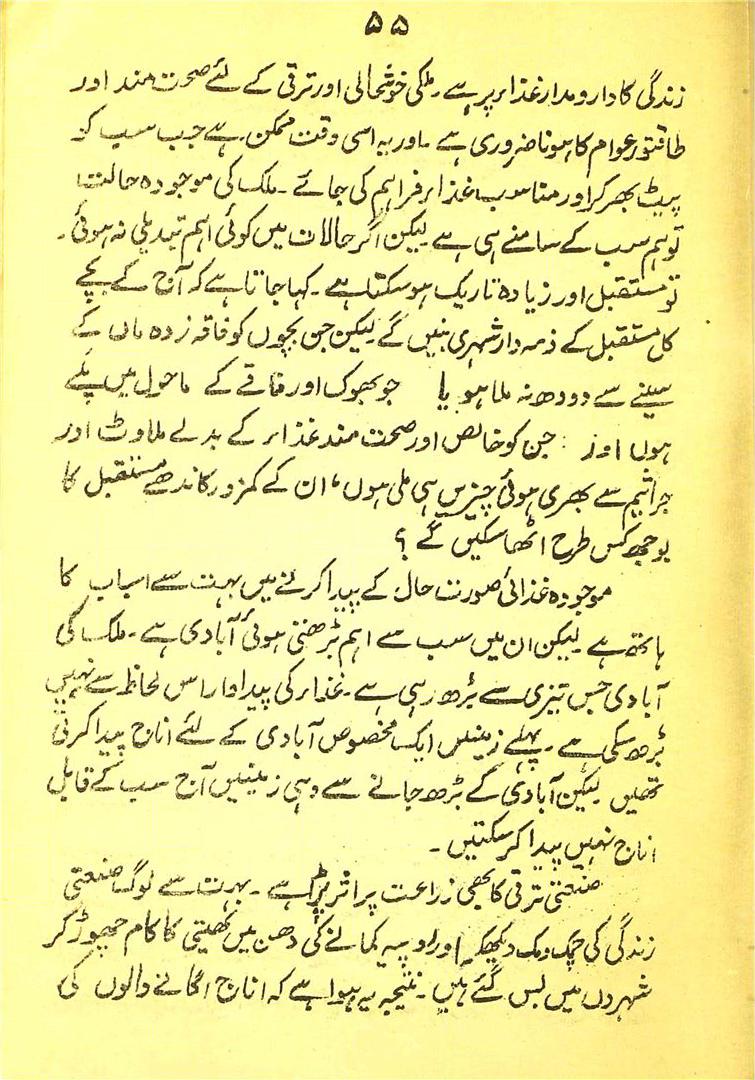 ۵۵
زندگی کا دارومدار غذاء پر ہے۔ ملکی خوشحالی اور ترقی کے لئے صحت مند اور
طاقتور عوام کا ہونا ضروری ہے۔ اور یہ اسی وقت ممکن ہے جب سب کو
پیٹ بھر کر اور مناسب غذاء فراہم کی جائے۔ ملک کی موجودہ حالت
تو ہم سب کے سامنے ہی ہے لیکن اگر حالات میں کوئی اہم تبدیلی نہ ہوئی۔
تو مستقبل اور زیادہ تاریک ہو سکتا ہے۔ کہا جاتا ہے کہ آج کے بچے
کل مستقبل کے ذمہ دار شہری بنیں گے لیکن جن بچوں کو فاقہ زدہ ماں کے
سینے سے دودھ نہ ملا ہو یا جو بھوک اور فاقے کے ماحول میں پلے
ہوں اور جن کو خالص اور صحت مند غذاء کے بدلے ملاوٹ اور
جراثیم سے بھری ہوئی چیزیں ہی ملی ہوں، ان کے کمزور کاندھے مستقبل کا
بوجھ کس طرح اٹھا سکیں گے؟
موجودہ غذائی صورت حال کے پیدا کرنے میں بہت سے اسباب کا
ہاتھ ہے۔ لیکن ان میں سب سے اہم بڑھتی ہوئی آبادی ہے۔ ملک کی
آبادی جس تیزی سے بڑھ رہی ہے۔ غذاء کی پیداوار اس لحاظ سے نہیں
بڑھ سکی ہے۔ پہلے زمینیں ایک مخصوص آبادی کے لئے اناج پیدا کرتی
تھیں لیکن آبادی کے بڑھ جانے سے وہی زمینیں آج سب کے قابل
اناج نہیں پیدا کر سکتیں۔
صنعتی ترقی کا بھی زراعت پر اثر پڑا ہے۔ بہت سے لوگ صنعتی
زندگی کی چمک دمک دیکھکر اور روپیہ کمانے کی دھن میں کھیتی کا کام چھوڑ کر
شہروں میں بس گئے ہیں۔ نتیجہ یہ ہوا ہے کہ اناج اگانے والوں کی